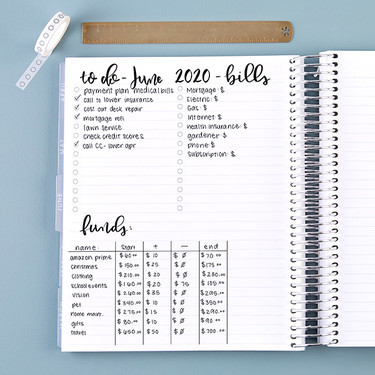 to do - June 2020 - bills
payment plan medical bills
✓ call to lower insurance
✓ cost out deck repair
✓ mortgage refi
lawn service
check credit scores
✓ call CC - lower apr
Mortgage: $
Electric: $
Gas: $
Internet: $
health insurance: $
gardener: $
phone: $
Subscription: $
funds:
name: start + — end
amazon prime $60.00 $10 $0 $70.00
christmas $150.00 $25 $0 $175.00
clothing $210.00 $20 $0 $230.00
school events $160.00 $20 $75 $105.00
vision $260.00 $35 $0 $295.00
pet $340.00 $10 $0 $350.00
home maint. $275.00 $15 $0 $290.00
gifts $80.00 $10 $0 $90.00
travel $650.00 $50 $0 $700.00